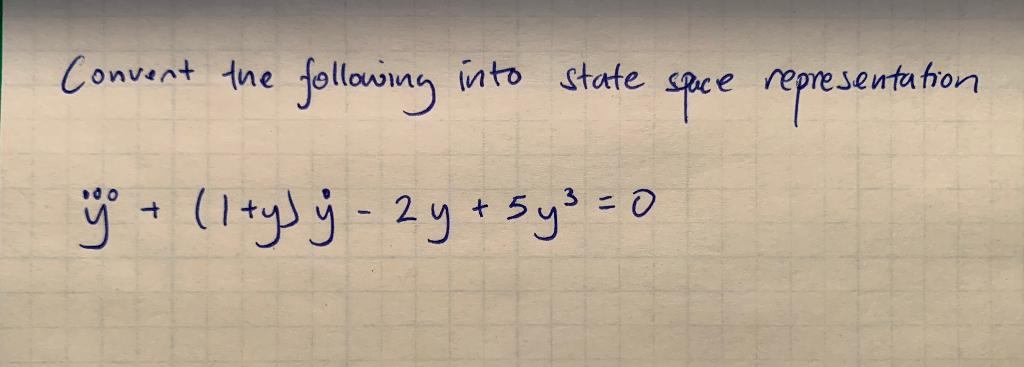 Convert the following into state space representation
y⃛ + (1+y)ẏ - 2y + 5y³ = 0